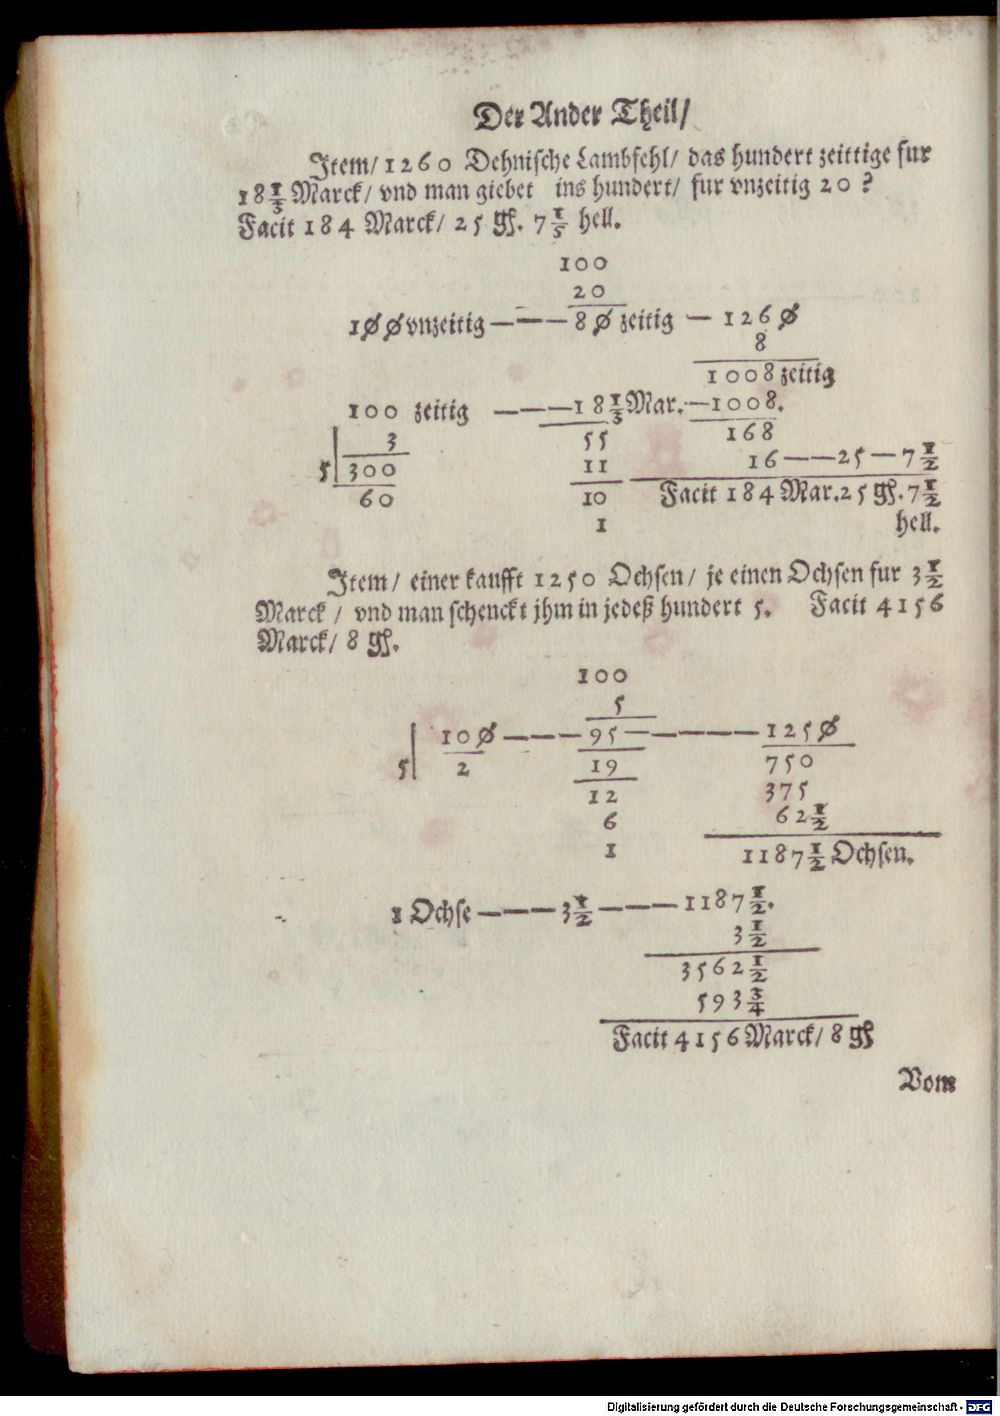 Der Ander Theil/
Item/ 1260 Dehnische Lambfehl/ das hundert zeittige fur
18 1/3 Marck/ vnd man giebet ins hundert/ fur vnzeitig 20 ?
Facit 184 Marck/ 25 gß. 7 1/5 hell.
100
20
100 vnzeitig — — — 80 zeitig — 1260
8
1008 zeitig
100 zeitig — — — 18 1/3 Mar. — 1008.
3 55 168
5 300 11 16 — — 25 — 7 1/2
60 10 Facit 184 Mar. 25 gß. 7 1/2
1 hell.
Item/ einer kaufft 1250 Ochsen/ je einen Ochsen fur 3 1/2
Marck/ vnd man schenckt jhm in jedeß hundert 5. Facit 4156
Marck/ 8 gß.
100
5
100 — — — 95 — — — — — 1250
5 2 19 750
12 375
6 62 1/2
1 1187 1/2 Ochsen.
1 Ochse — — — 3 1/2 — — — 1187 1/2.
3 1/2
3562 1/2
593 3/4
Facit 4156 Marck/ 8 gß
Vom
Digitalisierung gefördert durch die Deutsche Forschungsgemeinschaft - DFG